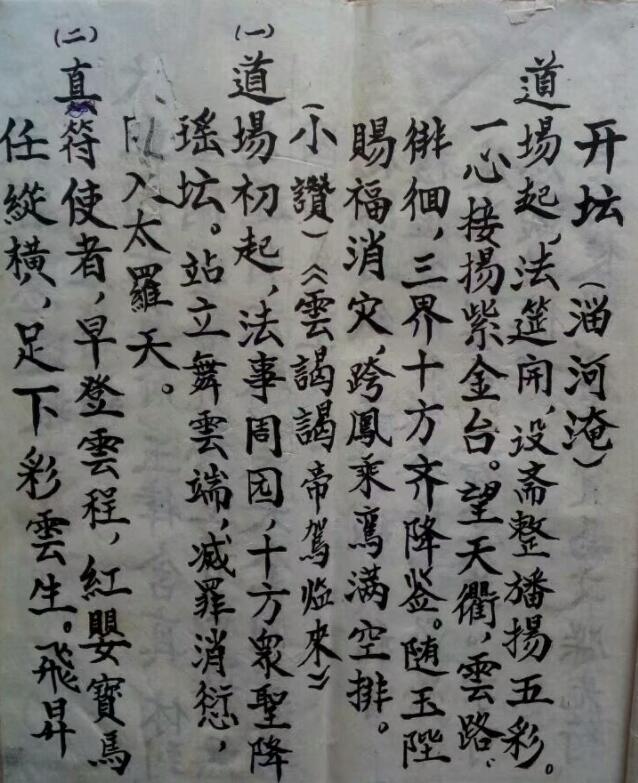 开坛（淄河淹）
道場起，法筵開，设斋整旛揚五彩。
一心接揚紫金台。望天衢，雲路
徘徊，三界十方齐降鉴。随玉陛
賜福消灾，跨鳳乘鸾满空排。
（小讚）《雲謁謁帝駕临来》
（一）道場初起，法事周囩，十方眾聖降
瑶坛。站立舞雲端，减罪消愆，
入太羅天。
（二）真符使者，早登雲程，紅嬰寶馬
任縱横，足下彩雲生。飛昇